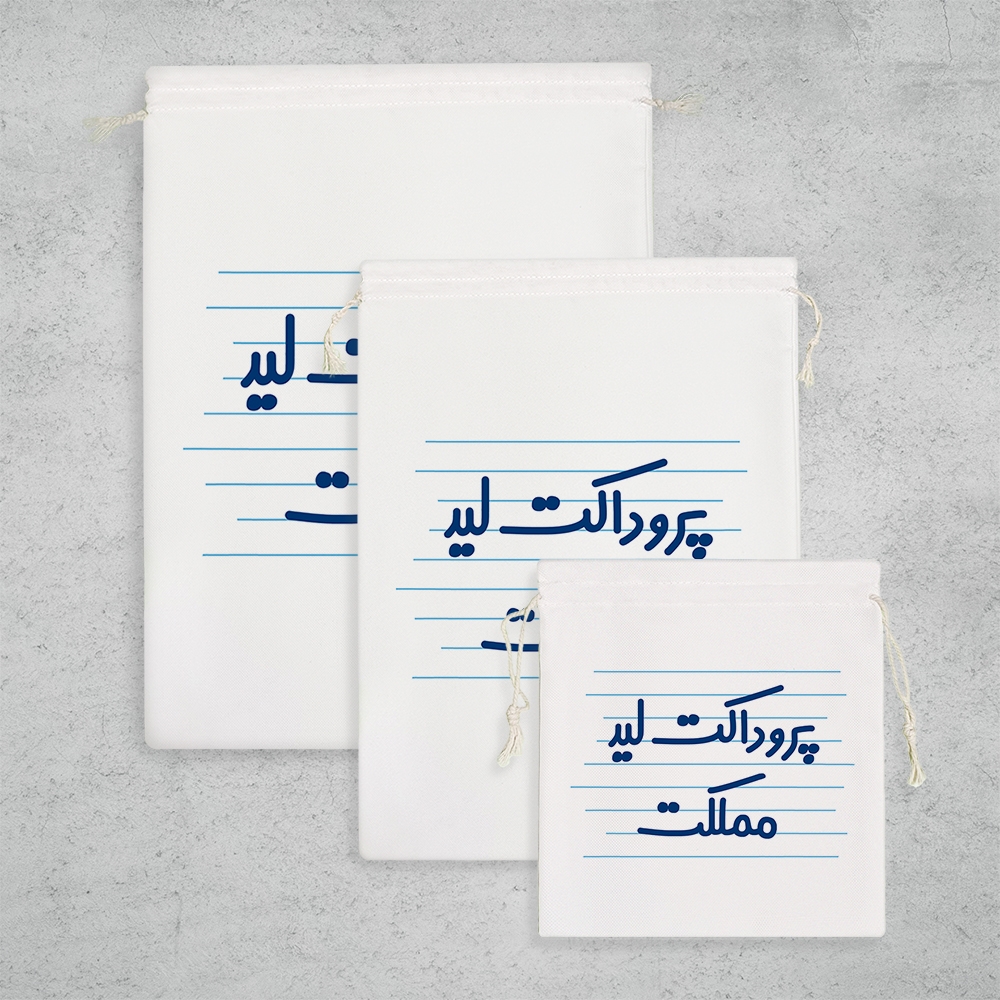 لید
پروداکت لید
پروداکت لید
مملکت